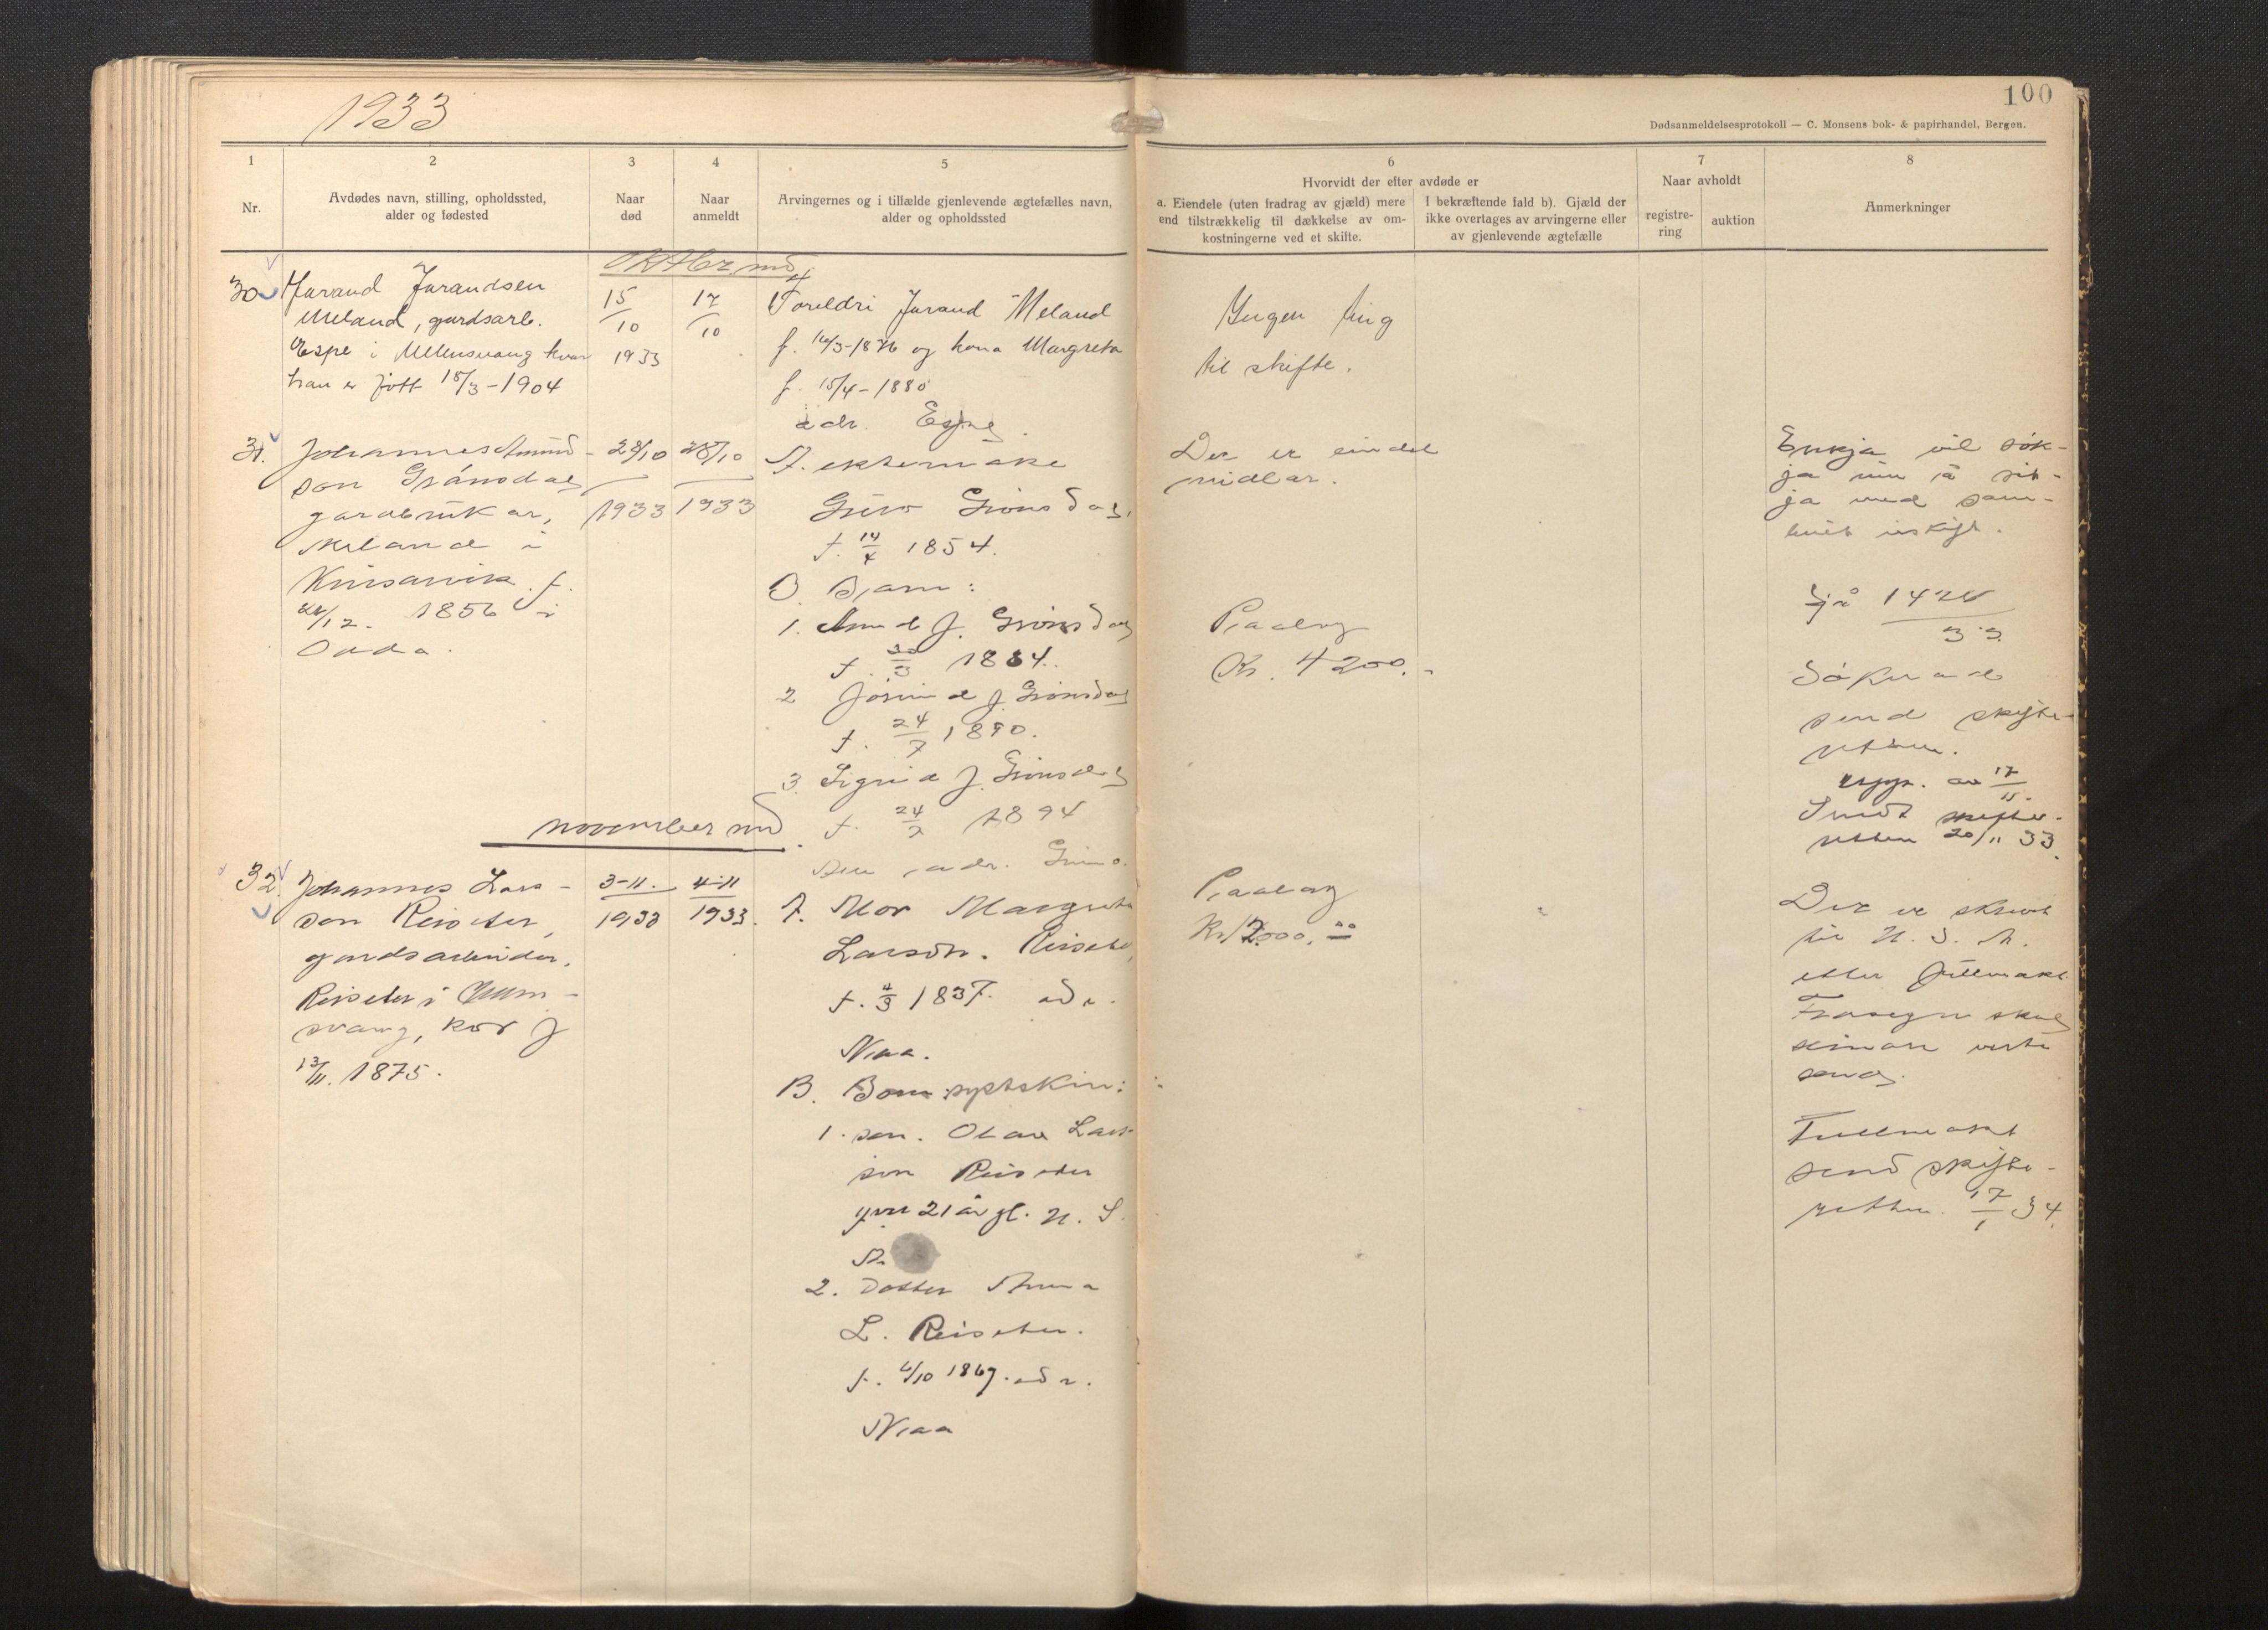 1933
100
Dødsanmeldelsesprotokoll — C. Monsens bok- & papirhandel, Bergen.
1
Nr.
2
Avdødes navn, stilling, opholdssted,
alder og fødested
3
Naar
død
4
Naar
anmeldt
5
Arvingernes og i tilfælde gjenlevende ægtefælles navn,
alder og opholdssted
6
Hvorvidt der efter avdøde er
a. Eiendele (uten fradrag av gjæld) mere
end tilstrækkelig til dækkelse av om-
kostningerne ved et skifte.
I bekræftende fald b). Gjæld der
ikke overtages av arvingerne eller
av gjenlevende ægtefælle
7
Naar avholdt
registre-
ring
auktion
8
Anmerkninger
30
Jurand Jurandsen
Meland, gardsarb.
Espe i Ullensvang kvar
han er født 15/3-1904
15/10
1933
17/10
Foreldri Jurand Meland
og kona Margreta
f. 15/4-1880
adr. Espe.
Ingen ting
til skifte.
31.
Johannes Amund-
son
gardbrukar,
Meland i
Kinsarvik f.
1856 i
Odda.
1933
28/10
1933
A. ektemake
f. 14/4 1854.
B. Barn:
1. Amund J.
f. 30/3 1884.
2 J.
f. 24/7 1890.
3. Sigrid J.
f. 24/7 1894
Der er eindel
midlar.
Paalag
Kr. 4200.-
Enkja vil søk-
ja um å sit-
ja med sam-
buet uskift.
Sjå
33
Søknad
send skifte-
retten.
17/11.
Sendt skifte-
retten 20/11 33.
november md.
32.
Johannes Lars-
son Reiseter,
gardsarbeider,
Reiseter i Ullen-
svang, kor f
13/11. 1875.
3-11.
1933
4-11
1933.
A. Mor Margreta
Larsdtr. Reiseter,
1837. adr.
Naa.
B.
1. son. Olav Lars-
son Reiseter
yver 21 år gl. U. S.
A.
2. Dotter Anna
L. Reiseter.
adr.
Naa
Paalag
Kr 2000.00
Der er skrive
til U. S. A.
etter fullmakt
Frasegn skal
seinare verta
send.
Fullmakt
send skifte-
retten. 17/1 34.